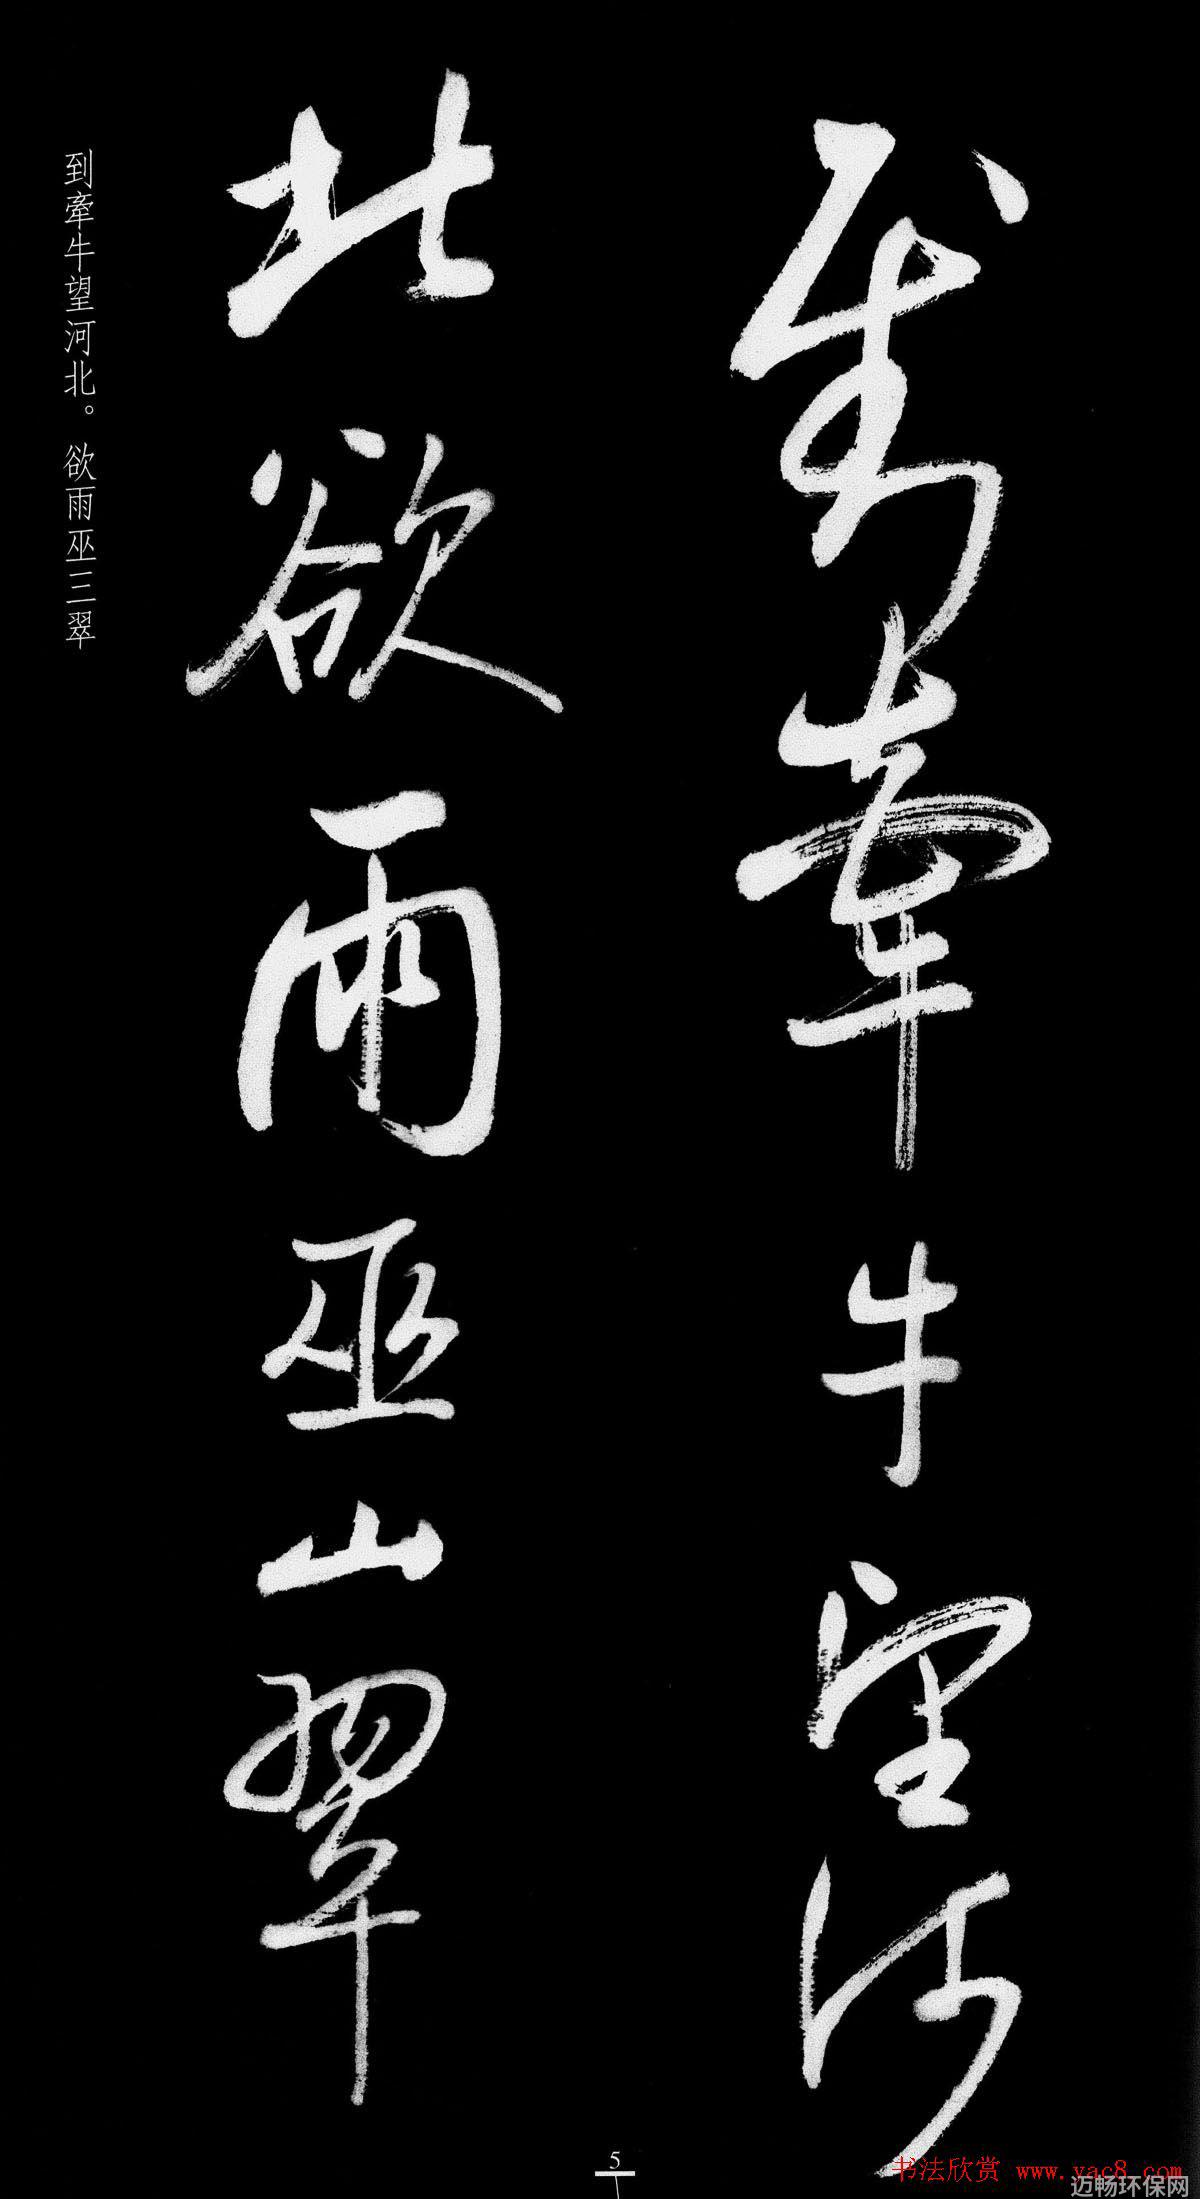 到牵牛望河
北欲雨巫山翠
到牵牛望河北。欲雨巫三翠
5
书法欣赏 www.yac8.com
迈畅环保网